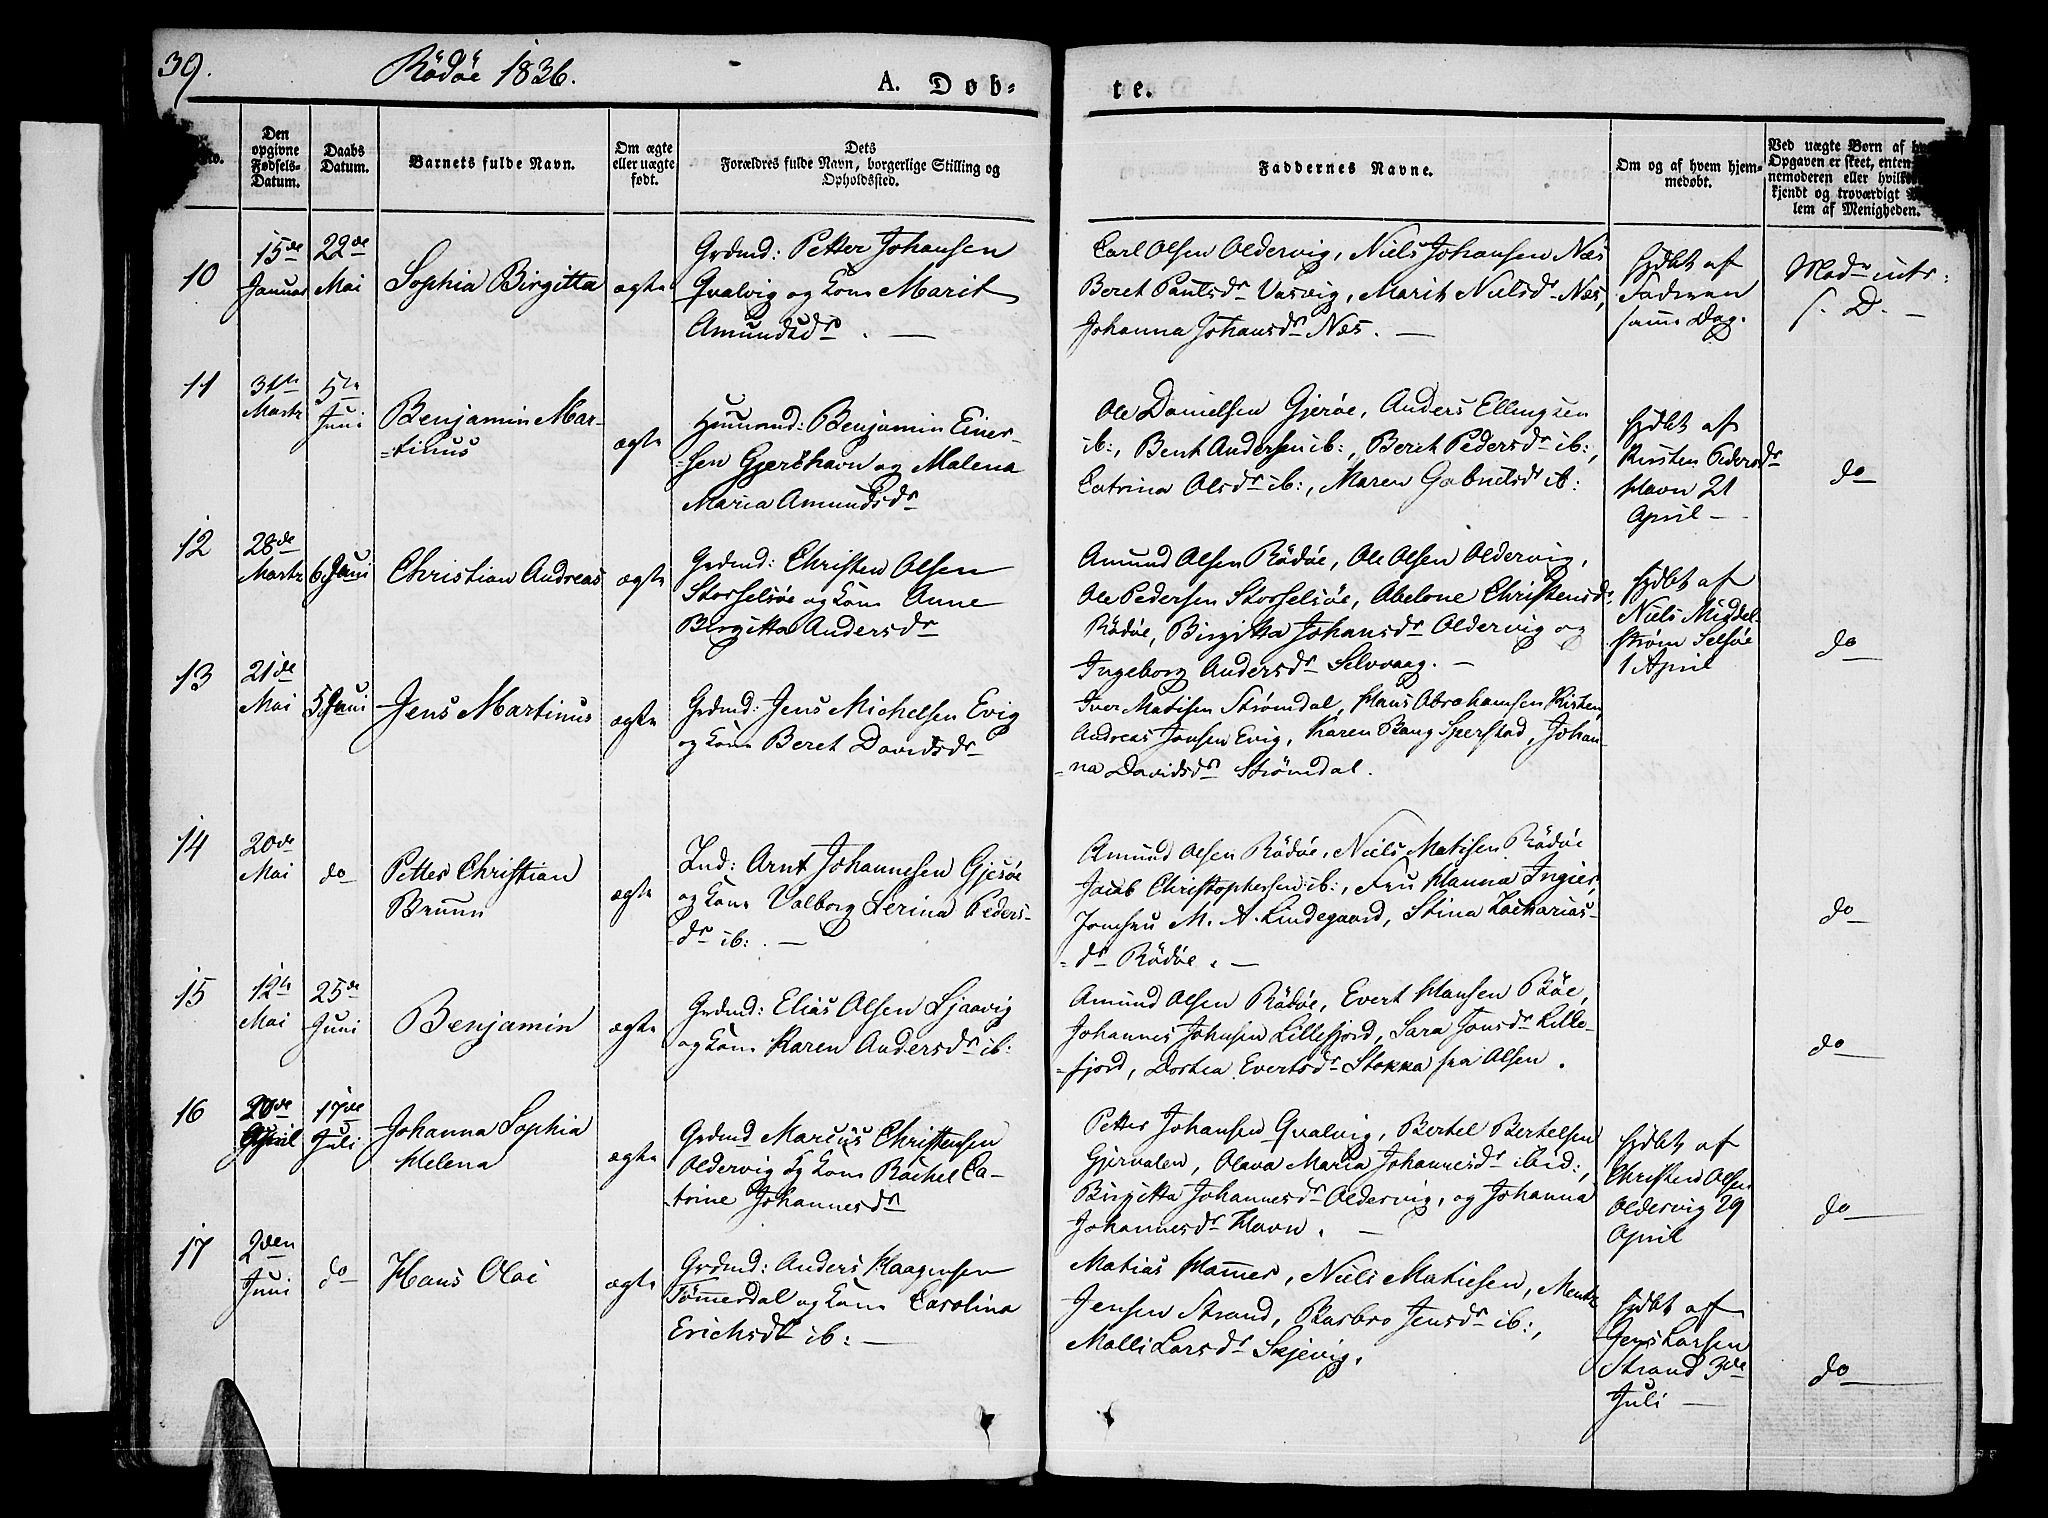 39.
Rödöe 1836.
A. Døb-
te.
No.
Den opgivne Fødsels-Datum.
Daabs Datum.
Barnets fulde Navn.
Om ægte eller uægte født.
Dets
Forældres fulde Navn, borgerlige Stilling og Opholdssted.
Faddernes Navne.
Om og af hvem hjemmedøbt.
Ved uægte Børn af
Opgaven er skeet, enten
nemoderen eller
kjendt og troværdigt
lem af Menigheden.
10
15de Januar
22de Mai
Sophia Birgitta
ægte
Grdmd: Petter Johansen
Qvalvig og Kone Marit
Amundsdr. —
Carl Olsen Oldervig, Niels Johansen Næs
Beret Paulsdr Vasvig, Marit Nielsdr Næs,
Johanna Johansdr Næs. —
hjdbt af
Faderen
samme Dag.
Modr intr:
s. D. —
11
31te Martz
5te Juni
Benjamin Mar-
-tinus
ægte
Huusmd: Benjamin Einer-
-sen Gjershavn og Malena
Maria Amundsdr
Ole Danielsen Gjerøe, Anders Ellingsen
ib:, Bent Andersen ib:, Beret Pedersdr ib:,
Catrina Olsdr ib:, Maren Gabrielsdr ib:
hjdbt af
Kirsten Pedersdr
Havn 21
April —
do
12
28de Martz
6 Juni
Christian Andreas
ægte
Grdmd: Christen Olsen
Storselsöe og Kone Anne
Birgitta Andersdr
Amund Olsen Rödöe, Ole Olsen Oldervig,
Ole Pedersen Storselsöe, Abelone Christensdr
Rödöe, Birgitta Johansdr Oldervig og
Ingeborg Andersdr Selvvaag. —
hjdbt af
Niels Middel-
strøm Selsöe
1 April
do
13
21de Mai
5 Juni
Jens Martinus
ægte
Grdmd: Jens Michelsen Evig
og Kone Beret Davidsdr
Iver Matisen Strømdal, Hans Abrahamsen Kirsten,
Andreas Jonsen Evig, Karen Bang Sperstad, Johan-
-na Davidsdr Strömdal.
14
20de Mai
do
Petter Christian
Bruun
ægte
Ind: Arnt Johannesen Gjesöe
og Kone Valborg Serina Peders-
-dr ib: . —
Amund Olsen Rödöe, Niels Matisen Rödöe
Jacob Christophersen ib:, Fru Hanna Ingier,
Jomfru M. A. Lindegaard, Stina Zacharias-
-dr Rödöe. —
do
15
12te Mai
25de Juni
Benjamin
ægte
Grdmd: Elias Olsen Ljaavig
og Kone Karen Andersdr ib:
Amund Olsen Rödöe, Evert Hansen Böe,
Johannes Johnsen Lillefjord, Sara Jonsdr Lille-
-fjord, Dortea Evertsdr Stokka fra Alsen.
do
16
20de April
17de Juli
Johanna Sophia
Helena
ægte
Grdmd Marcus Christensen
Oldervig og Kone Rachel Ca-
-trine Johannesdr
Petter Johansen Qvalvig, Bertel Bertelsen
Gjervalen, Olava Maria Johannesdr ibid:,
Birgitta Johannesdr Oldervig, og Johanna
Johannesdr Havn. —
hjdbt af
Christen Olsen
Oldervig 29
April
do
17
2den Juni
do
Hans Olai
ægte
Grdmd: Anders Haagensen
Tömmerdal og Kone Carolina
Erichsdr ib: —
Matias Hammer, Niels Matiesen, Mentz
Jensen Strand, Barbro Jensdr ib:,
Malli Larsdr Skjevig.
hjdbt af
Jens Larsen
Strand 3de
Juli —
do